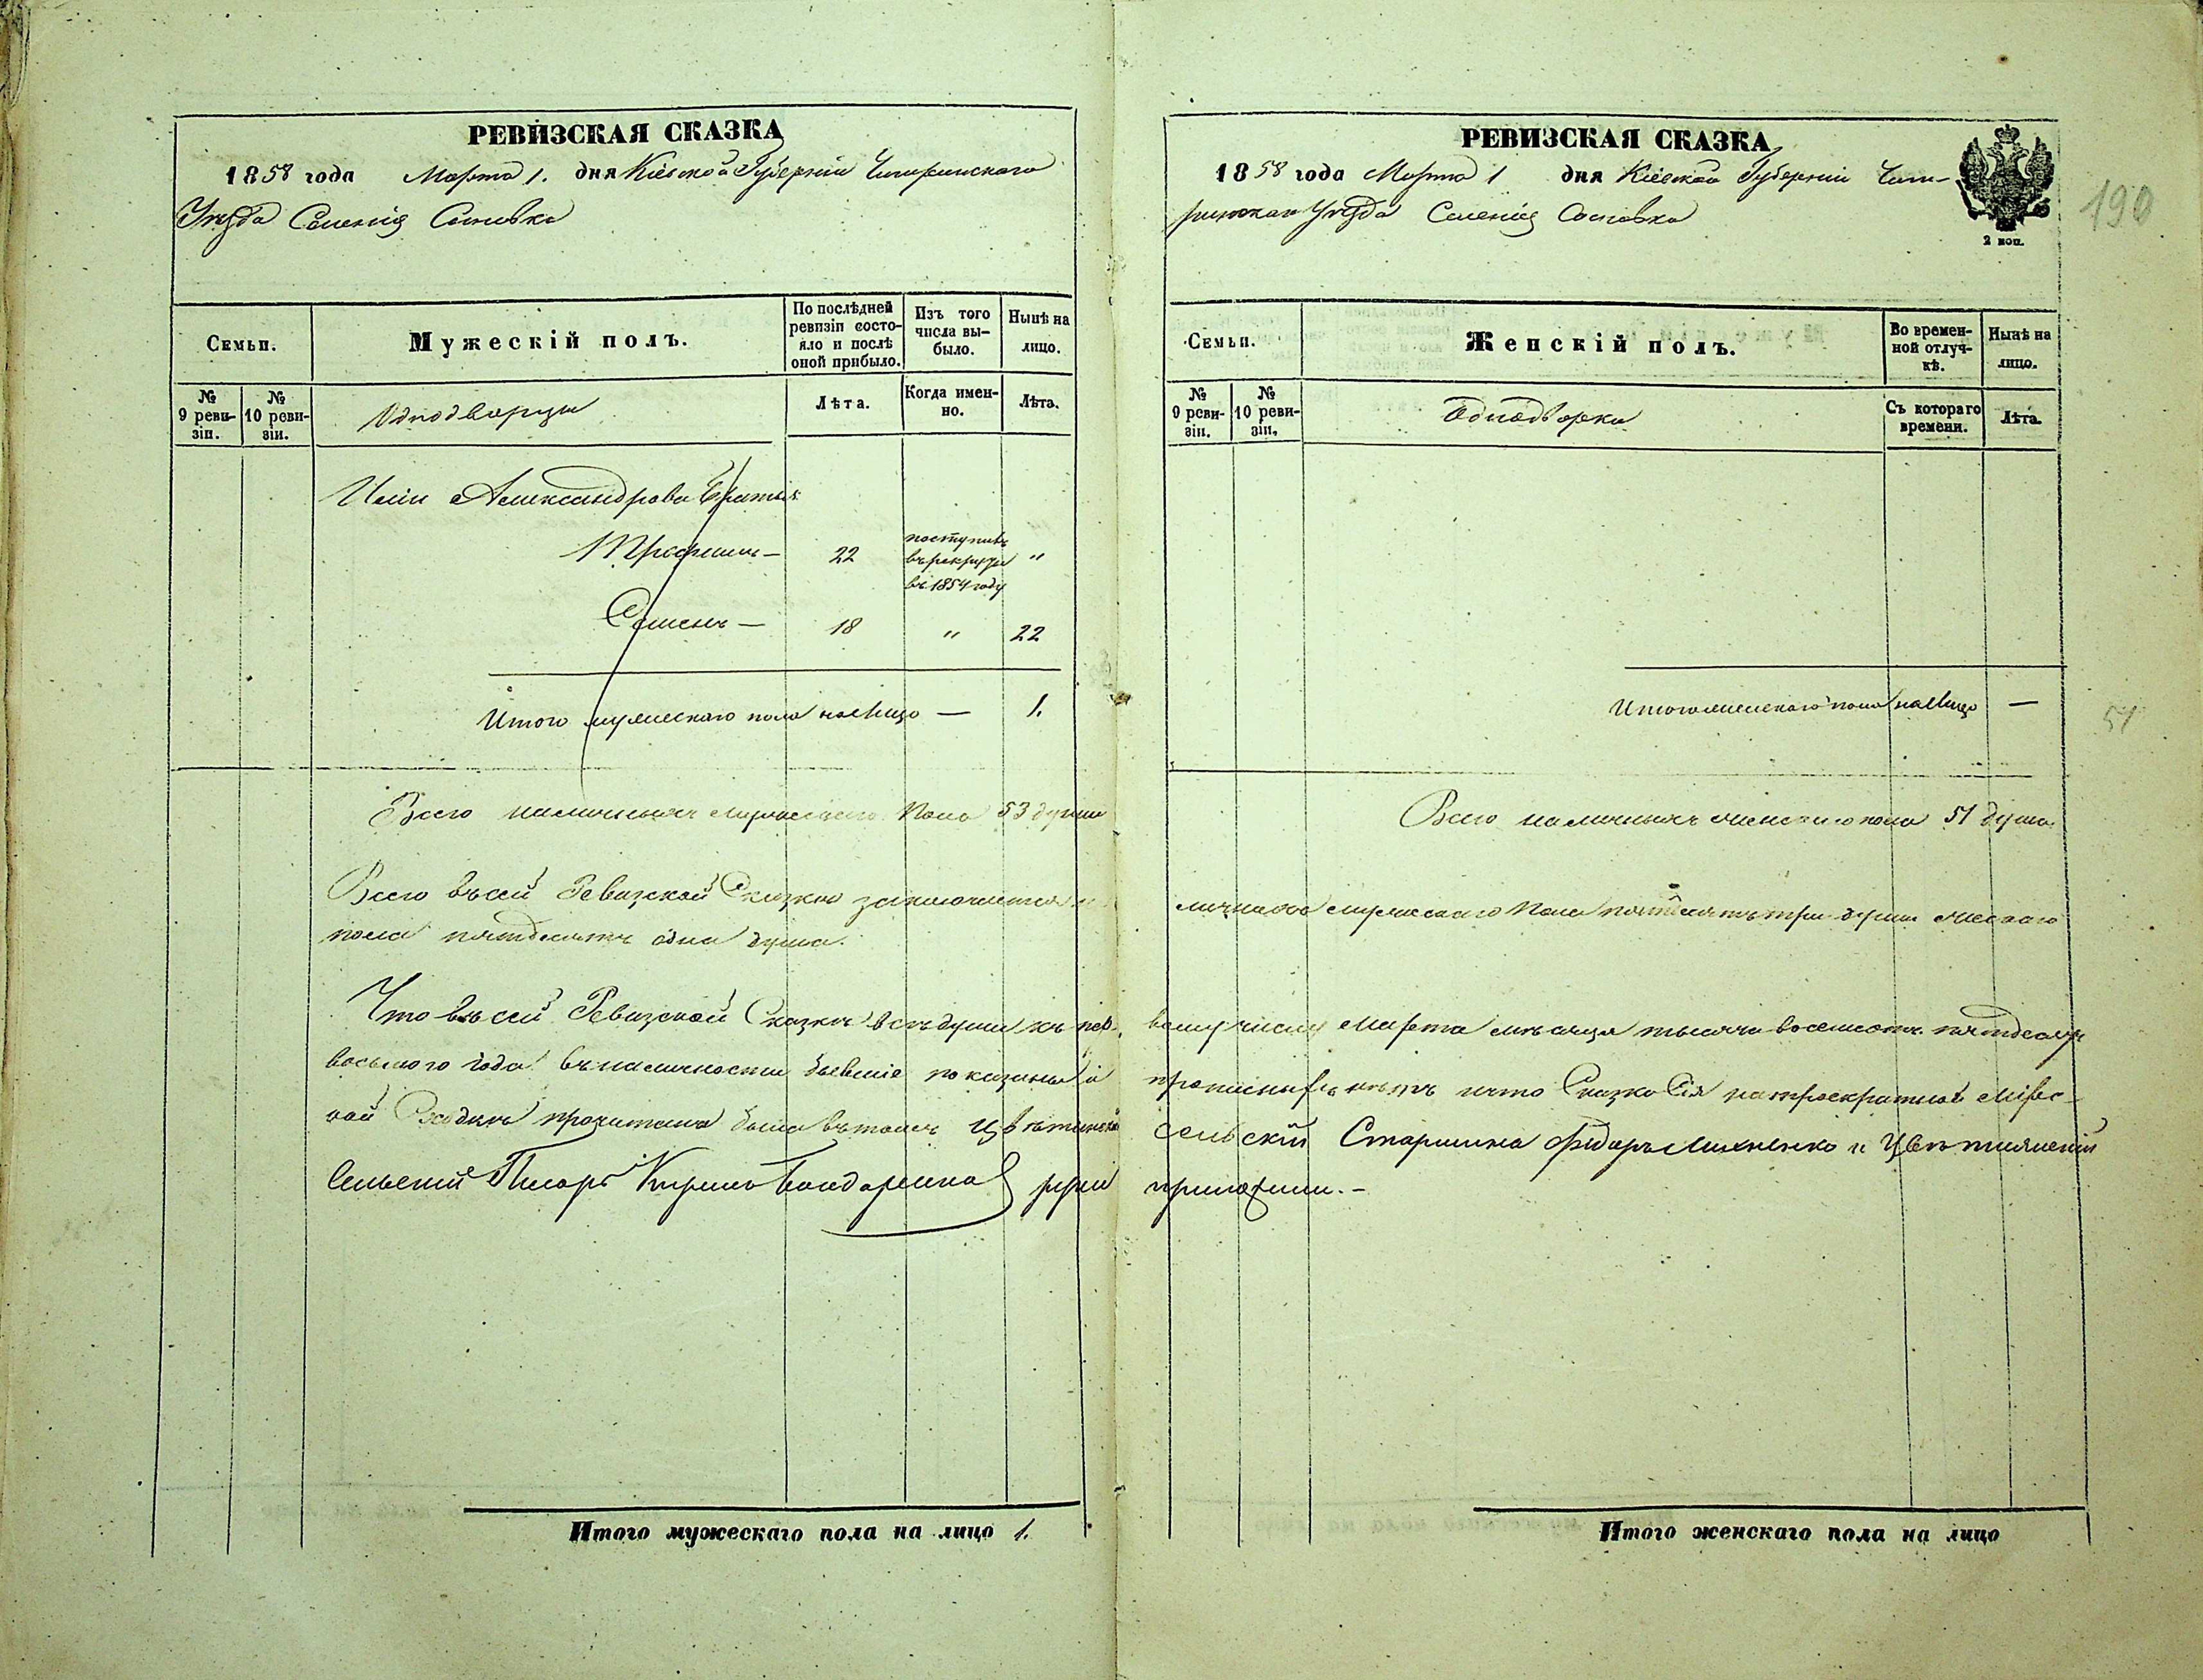 РЕВИЗСКАЯ СКАЗКА
1858 года Марта 1. дня Кіевской Губерніи Чигиринскаго
Уѣзда Селенія Сосновки
Семьи.
Мужескій полъ.
По послѣдней ревизіи состояло и послѣ оной прибыло.
Изъ того числа выбыло.
Нынѣ на лицо.
№ 9 ревизіи.
№ 10 ревизіи.
Однодворцы
Лѣта.
Когда именно.
Лѣта.
Александрова братья
Трофимъ — 22 поступилъ въ рекруты въ 1854 году "
Семенъ — 18 " 22
Итого мужескаго пола налицо — 1.
Всего наличныхъ мужескаго пола 53 души
Всего въ сей Ревизской Сказке заключается
пола пятдесятъ одна душа.
Что въ сей Ревизской Сказке всѣ души къ пер-
восьмого года въ наличности бывшіе показаны и
кой Сходке прочитана была въ томъ
Сельскій Писарь Кирило Бондаренко руки
Итого мужескаго пола на лицо 1.
РЕВИЗСКАЯ СКАЗКА
1858 года Марта 1 дня Кіевской Губерніи Чиги-
ринскаго Уѣзда Селенія Сосновки
2 коп.
190
Семьи.
Женскій полъ.
Во временной отлучкѣ.
Нынѣ на лицо.
№ 9 ревизіи.
№ 10 ревизіи.
Однодворки
Съ котораго времени.
Лѣта.
Итого женскаго пола налицо —
51
Всего наличныхъ женскаго пола 51 душа.
личнаго мужескаго пола пятдесятъ три души женскаго
вому числу Марта мѣсяца тысяча восемсотъ пятдесятъ
нѣтъ и что Сказка сія на троекратной мірс-
сельскій Старшина Фидоръ и
приложили. –
Итого женскаго пола на лицо